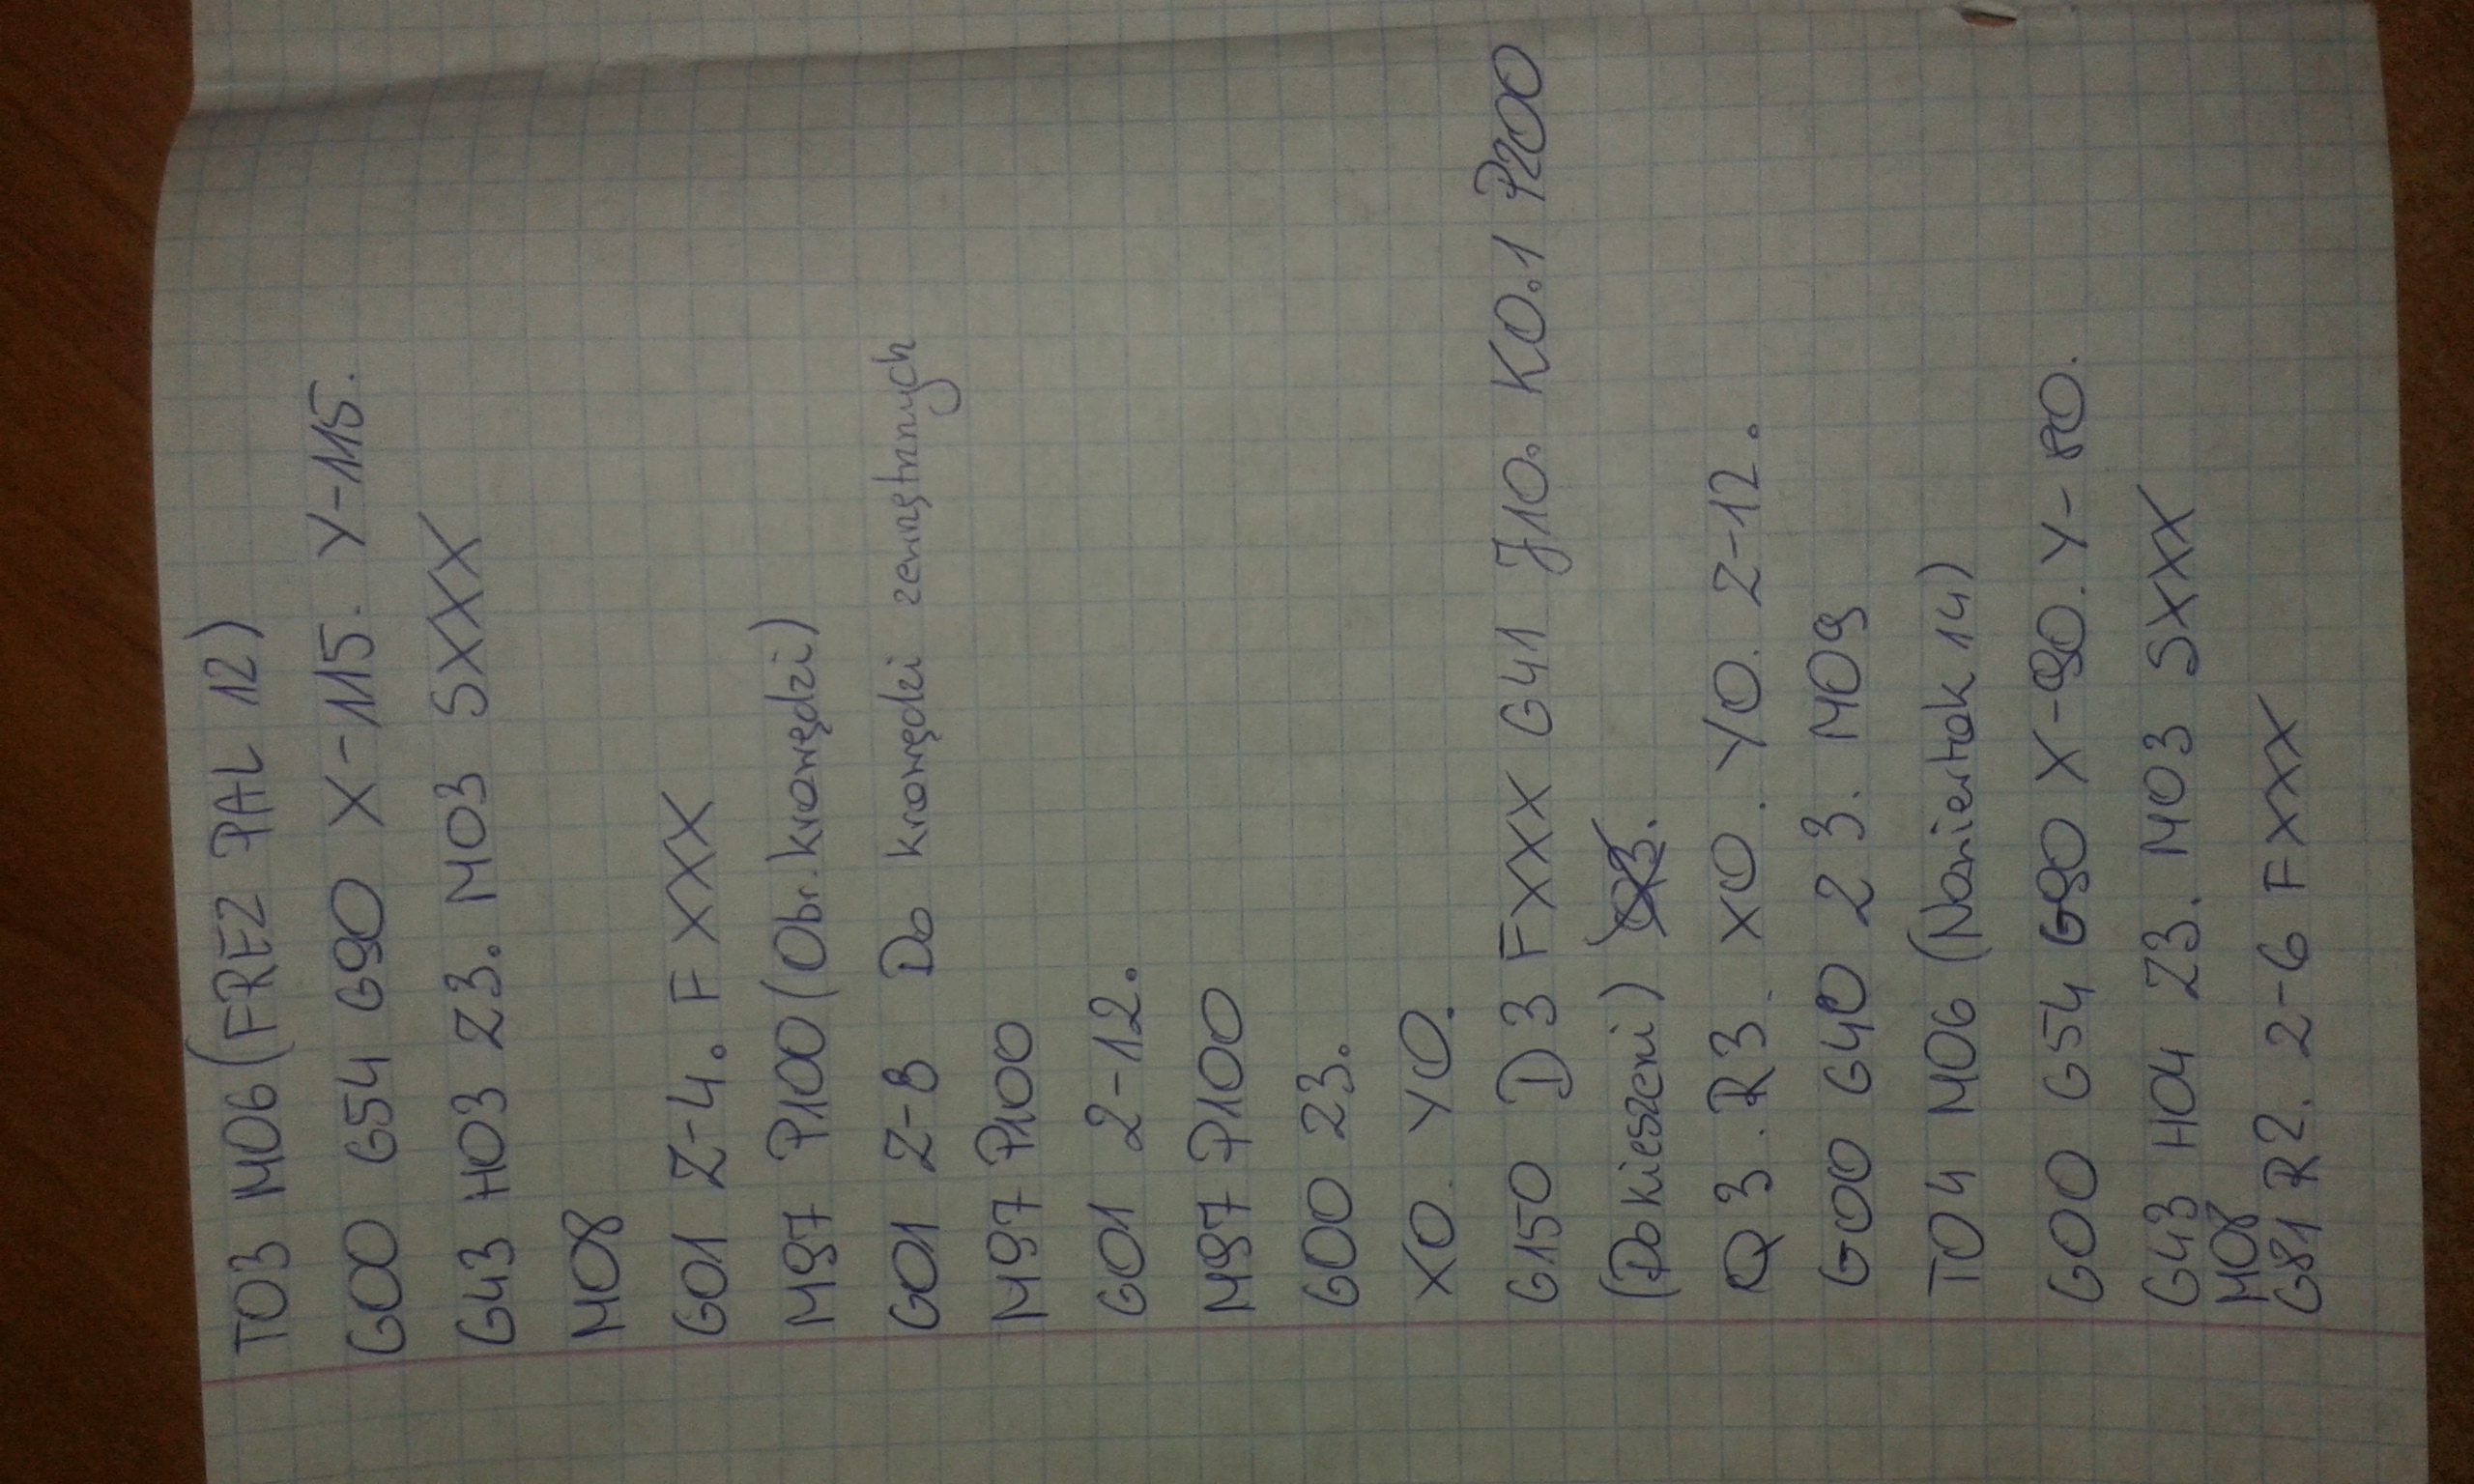 T03 M06 (FREZ PAL 12)
G00 G54 G90 X-115. Y-115.
G43 H03 Z3. M03 SXXX
M08
G01 Z-4. F XXX
M97 P100 (Obr. krawędzi)
G01 Z-8 Do krawędzi zewnętrznych
M97 P100
G01 Z-12.
M97 P100
G00 Z3.
X0. Y0.
G150 D3 FXXX G41 J10. K0.1 P200
(Do kieszeni)
Q3. R3. X0. Y0. Z-12.
G00 G40 Z3. M09
T04 M06 (Nawiertak 14)
G00 G54 G90 X-90. Y-80.
G43 H04 Z3. M03 SXXX
M08
G81 R2. Z-6 FXXX